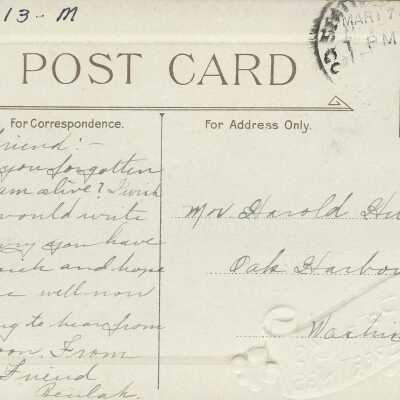 13-M
MAR 17
1 PM
POST CARD
For Correspondence.
For Address Only.
Friend:-
you forgotten
am alive? I wish
would write
you have
sick and hope
well now
to hear from
soon. From
Friend
Beulah.
Mr. Harold
Oak Harbo
Washin